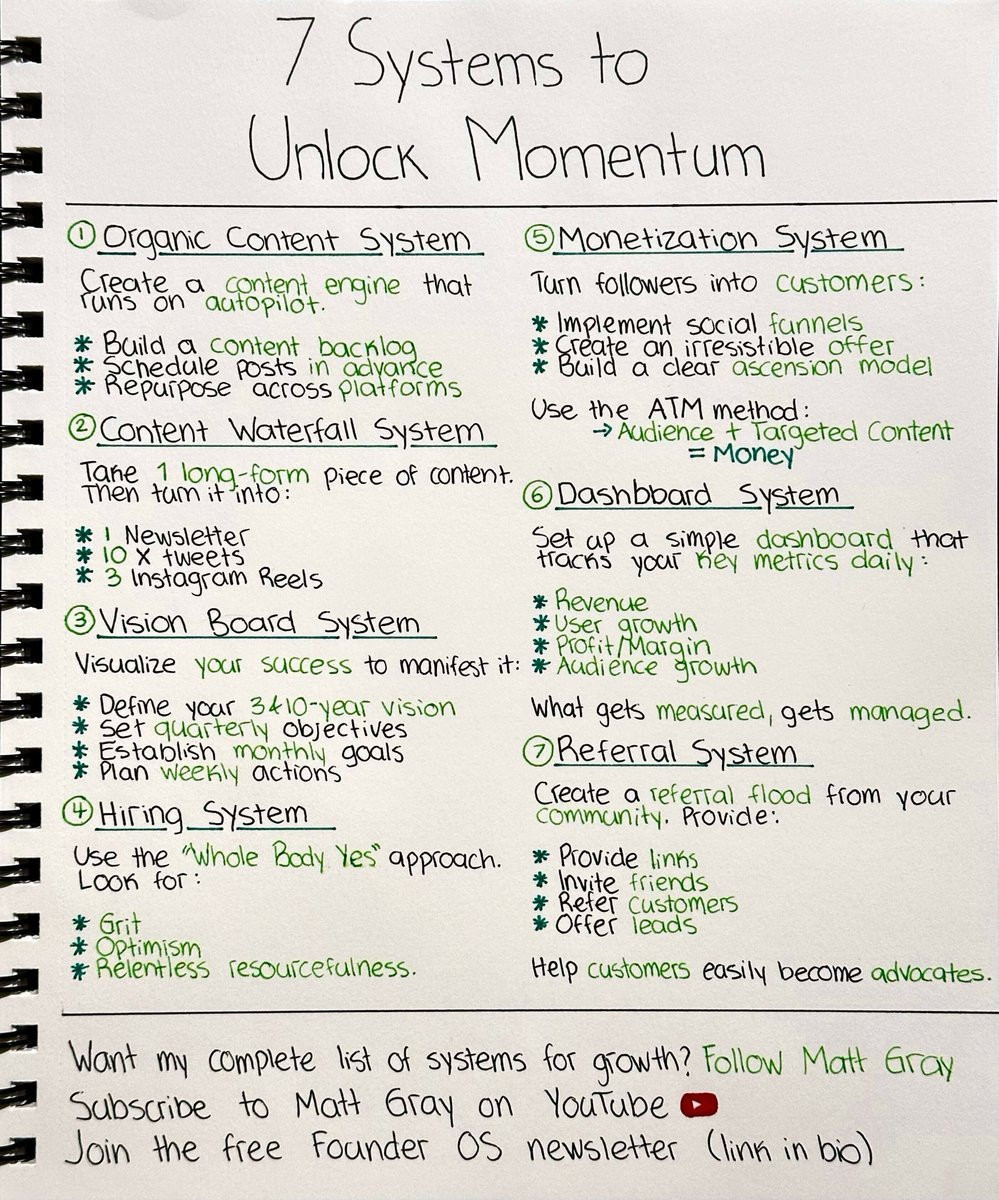 7 Systems to
Unlock Momentum
① Organic Content System
Create a content engine that
runs on autopilot.
* Build a content backlog
* Schedule posts in advance
* Repurpose across platforms
② Content Waterfall System
Take 1 long-form piece of content.
Then turn it into:
* 1 Newsletter
* 10 X tweets
* 3 Instagram Reels
③ Vision Board System
Visualize your success to manifest it:
* Define your 3&10-year vision
* Set quarterly objectives
* Establish monthly goals
* Plan weekly actions
④ Hiring System
Use the "Whole Body Yes" approach.
Look for:
* Grit
* Optimism
* Relentless resourcefulness.
⑤ Monetization System
Turn followers into customers:
* Implement social funnels
* Create an irresistible offer
* Build a clear ascension model
Use the ATM method:
→ Audience + Targeted Content
= Money
⑥ Dashbboard System
Set up a simple dashboard that
tracks your key metrics daily:
* Revenue
* User growth
* Profit/Margin
* Audience growth
What gets measured, gets managed.
⑦ Referral System
Create a referral flood from your
community. Provide:
* Provide links
* Invite friends
* Refer customers
* Offer leads
Help customers easily become advocates.
Want my complete list of systems for growth? Follow Matt Gray
Subscribe to Matt Gray on YouTube
Join the free Founder OS newsletter (link in bio)